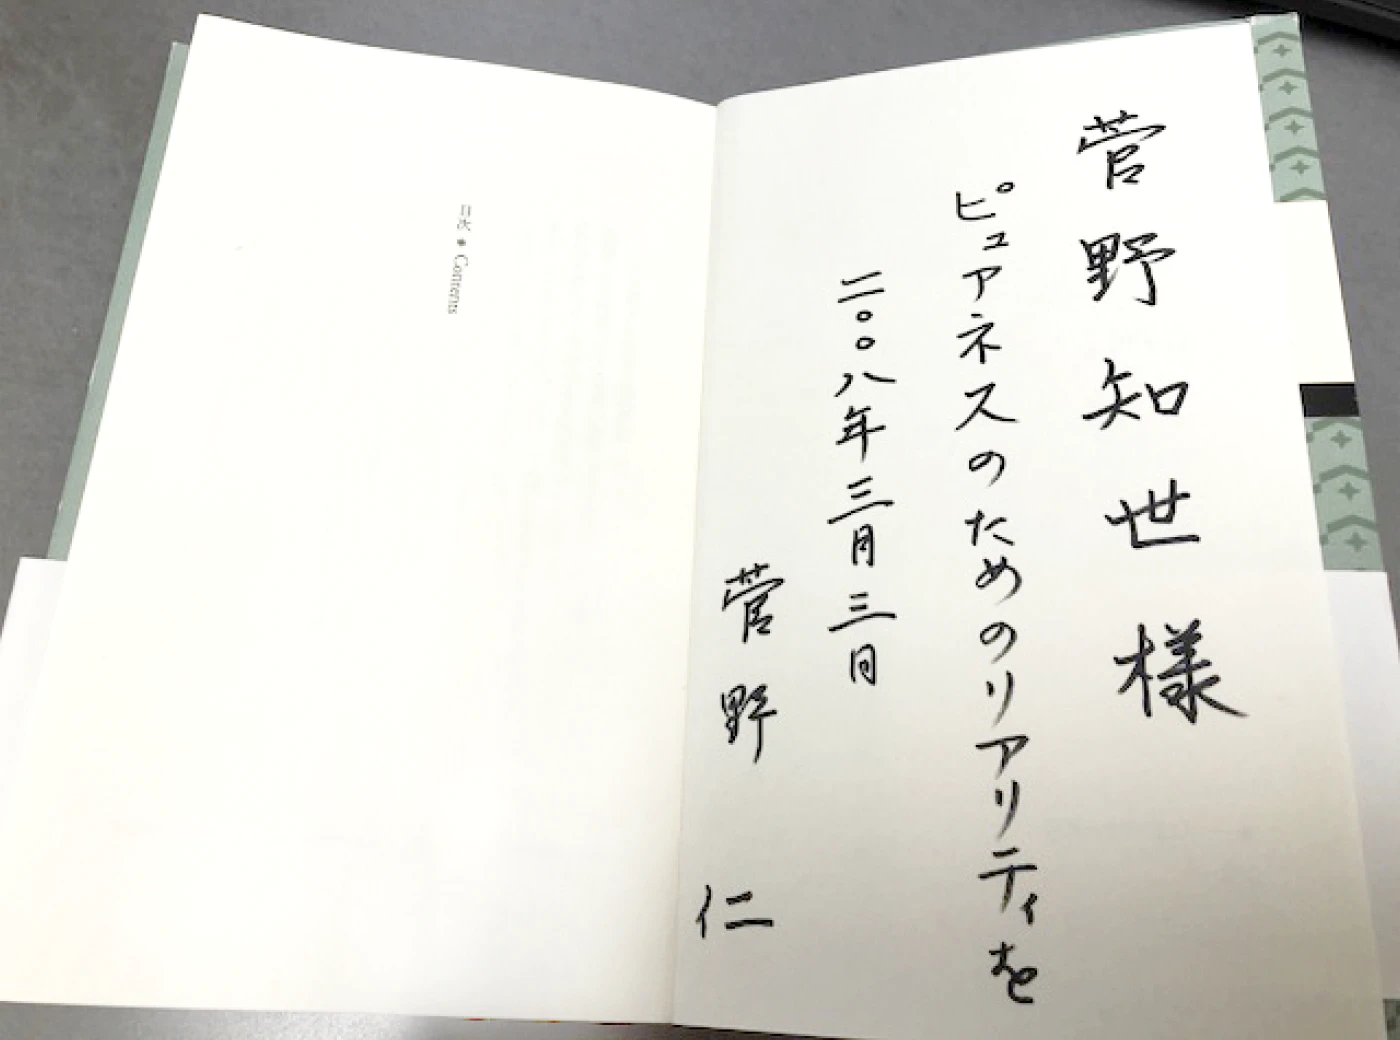 菅野知世様
ピュアネスのためのリアリティを
二〇〇八年三月三日
菅野 仁
目次 * Contents